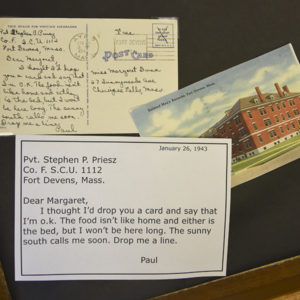 Pvt Stephen P. Priesz
Co. F. S.C.U. 1112
Fort Devens, Mass.
Dear Margaret,
I thought I'd drop
you a card and say that
I'm o.k. The food isn't
like home and either is
the bed, but I won't
be here long. The sunny
south calls me soon.
Drop me a line.
Paul
Free
POST CARD
Miss Margaret
Chicopee Falls Mass.
January 26, 1943
Pvt. Stephen P. Priesz
Co. F. S.C.U. 1112
Fort Devens, Mass.
Dear Margaret,
I thought I'd drop you a card and say that
I'm o.k. The food isn't like home and either is
the bed, but I won't be here long. The sunny
south calls me soon. Drop me a line.
Paul